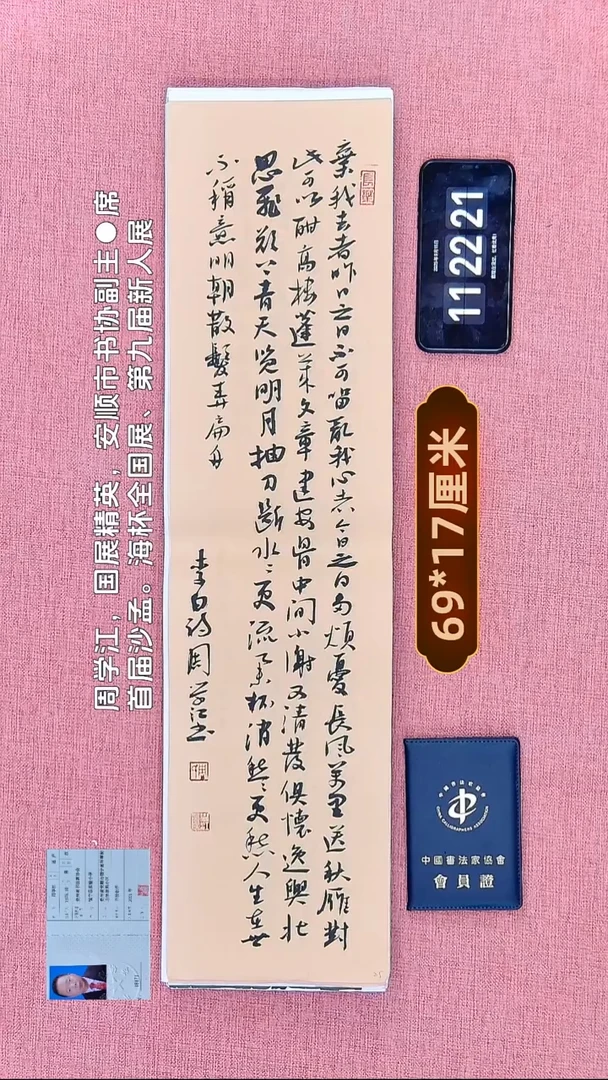 周学江，国展精英，安顺市书协副主●席
首届沙孟。海杯全国展、第九届新人展
棄我去者昨日之日不可留亂我心者今日之日多煩憂長风萬里送秋雁對
此可以酣高楼蓬萊文章建安骨中间小謝又清發俱懷逸興壮
思飛欲上青天览明月抽刀斷水〻更流举杯消愁〻更愁人生在世
不稱意明朝散髮弄扁舟
李白詩周学江书
11 22 21
69*17厘米
中國書法家協會
會員證